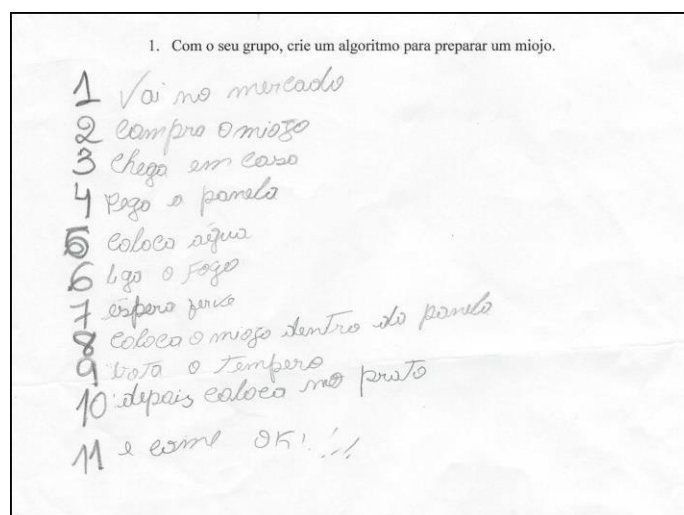 1. Com o seu grupo, crie um algoritmo para preparar um miojo.
1 Vai no mercado
2 compra o miojo
3 chega em casa
4 pega a panela
5 coloca água
6 liga o fogo
7 espera ferve
8 coloca o miojo dentro da panela
9 bota o tempero
10 depais coloca no prato
11 e come OK!!!